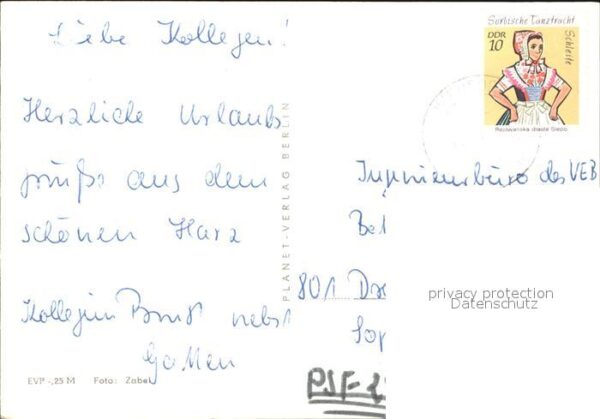 Liebe Kollegen!
Herzliche Urlaubs
grüße aus dem
schönen Harz
Kollegin nebst
Gatten
EVP -,25 M Foto: Zabel
PLANET-VERLAG BERLIN
Sorbische Tanztracht
Schleife
DDR
10
Rejowanska drasta Slepo
Ingenieurbüro des VEB
Bet
801 Dre
privacy protection
Datenschutz
PSF